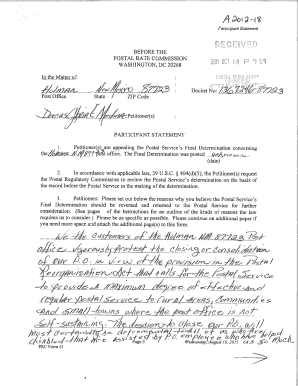 A2012-18
Participant Statement
RECEIVED
2011 OCT 18 P 3:59
POSTAL REGULATORY
BEFORE THE
POSTAL RATE COMMISSION
WASHINGTON, DC 20268
In the Matter of:
Holman New Mexico 87723
Post Office State ZIP Code
Docket No:
Petitioner(s)
PARTICIPANT STATEMENT
1. Petitioner(s) are appealing the Postal Service's Final Determination concerning
the Holman NM 87723 post office. The Final Determination was posted unknown
(date)
2. In accordance with applicable law, 39 U.S.C. § 404(d)(5), the Petitioner(s) request
the Postal Regulatory Commission to review the Postal Service's determination on the basis of
the record before the Postal Service in the making of the determination.
3. Petitioners: Please set out below the reasons why you believe the Postal Service's Final
Determination should be reversed and returned to the Postal Service for further
consideration. (See pages of the Instructions for an outline of the kinds of reasons the law
requires us to consider.) Please be as specific as possible. Please continue on additional paper if
you need more space and attach the additional page(s) to this form.
We the customers of the Holman NM 87723 Post
office vigorously protest the closing or consolidation
of our P.O. in view of the provision in the Postal
Reorganization Act that calls for the Postal Service
to provide a maximum degree of effective and
regular postal service to rural areas, communities
and small towns where the post office is not
self-sustaining. The decision to close our P.O. will
most certainly be detrimental to all of us who are
disabled that are assisted by P.O. employee who have helped
PRC Form 61
Page 5
Wednesday, August 10, 2011
us so much